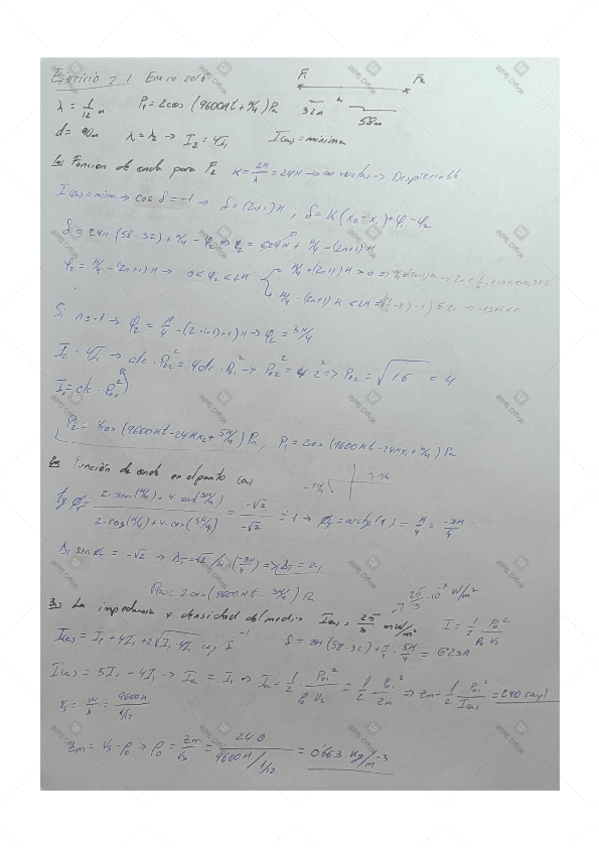 Ejercicio 1 Enero 2016
F1 F2
λ = 1/12 m P1 = 2cos (9600πt + π/4) Pa
32m a 58m
d = 90m λ1 = λ2 → I2 = 4I1 I(a) = mínima
1) Función de onda para F2 K = 2π/λ = 24π → Despreciable
I(a) = mina → cos δ = -1 → δ = (2n+1)π ; δ = K(x2 - x1) + φ1 - φ2
δ = 24π (58 - 32) + π/4 - φ2 = 624π + π/4 - (2n+1)π
φ2 = π/4 - (2n+1)π → 0 < φ2 < 2π
π/4 - (2n+1)π > 0
π/4 - (2n+1)π < 2π
Si n = -1 → φ2 = π/4 - (2·(-1)+1)π → φ2 = 5π/4
I2 = 4I1 → cte · P02² = 4cte · P01² → P02² = 4·2² → P02 = √16 = 4
I1 = cte · P01²
P2 = 4cos (9600πt - 24πx2 + 5π/4) Pa, P1 = 2cos (9600πt - 24πx1 + π/4) Pa
2) Función de onda en el punto (a)
tg φT = 2·sen(π/4) + 4·sen(5π/4) / 2·cos(π/4) + 4·cos(5π/4) = -√2 / -√2 = 1 → φT = arctg(1) = π/4 = -3π/4
AT senφT = -√2 → AT = -√2 / sen(-3π/4) → AT = 2
P(a) = 2cos (9600πt - 3π/4) Pa
25/3 · 10⁻³ W/m²
3) La impedancia y densidad del medio I(a) = 25/3 mW/m² I = 1/2 P0²/ρ0 vs
I(a) = I1 + 4I1 + 2√I1·4I1 cos δ -1 δ = 24π (58 - 32) + π/4 - 5π/4 = 623π
I(a) = 5I1 - 4I1 → Ia = I1 → Ia = 1/2 · P01²/ρ0 vs = 1/2 P01²/Zm → Zm = 1/2 · P01²/I(a) = 240 rayl
vs = w/λ = 9600π / 1/12
Zm = vs · ρ0 → ρ0 = Zm/vs = 240 / 9600π / 1/12 = 0'663 kg/m⁻³